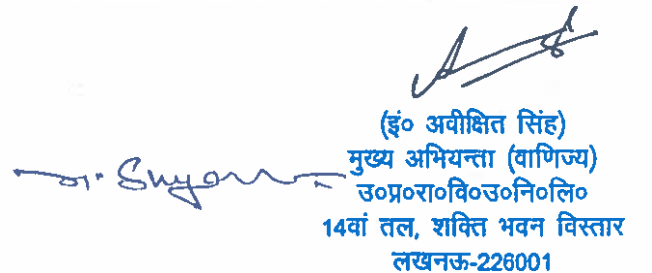 (इं० अवीक्षित सिंह)
मुख्य अभियन्ता (वाणिज्य)
उ०प्र०रा०वि०उ०नि०लि०
14वां तल, शक्ति भवन विस्तार
लखनऊ-226001